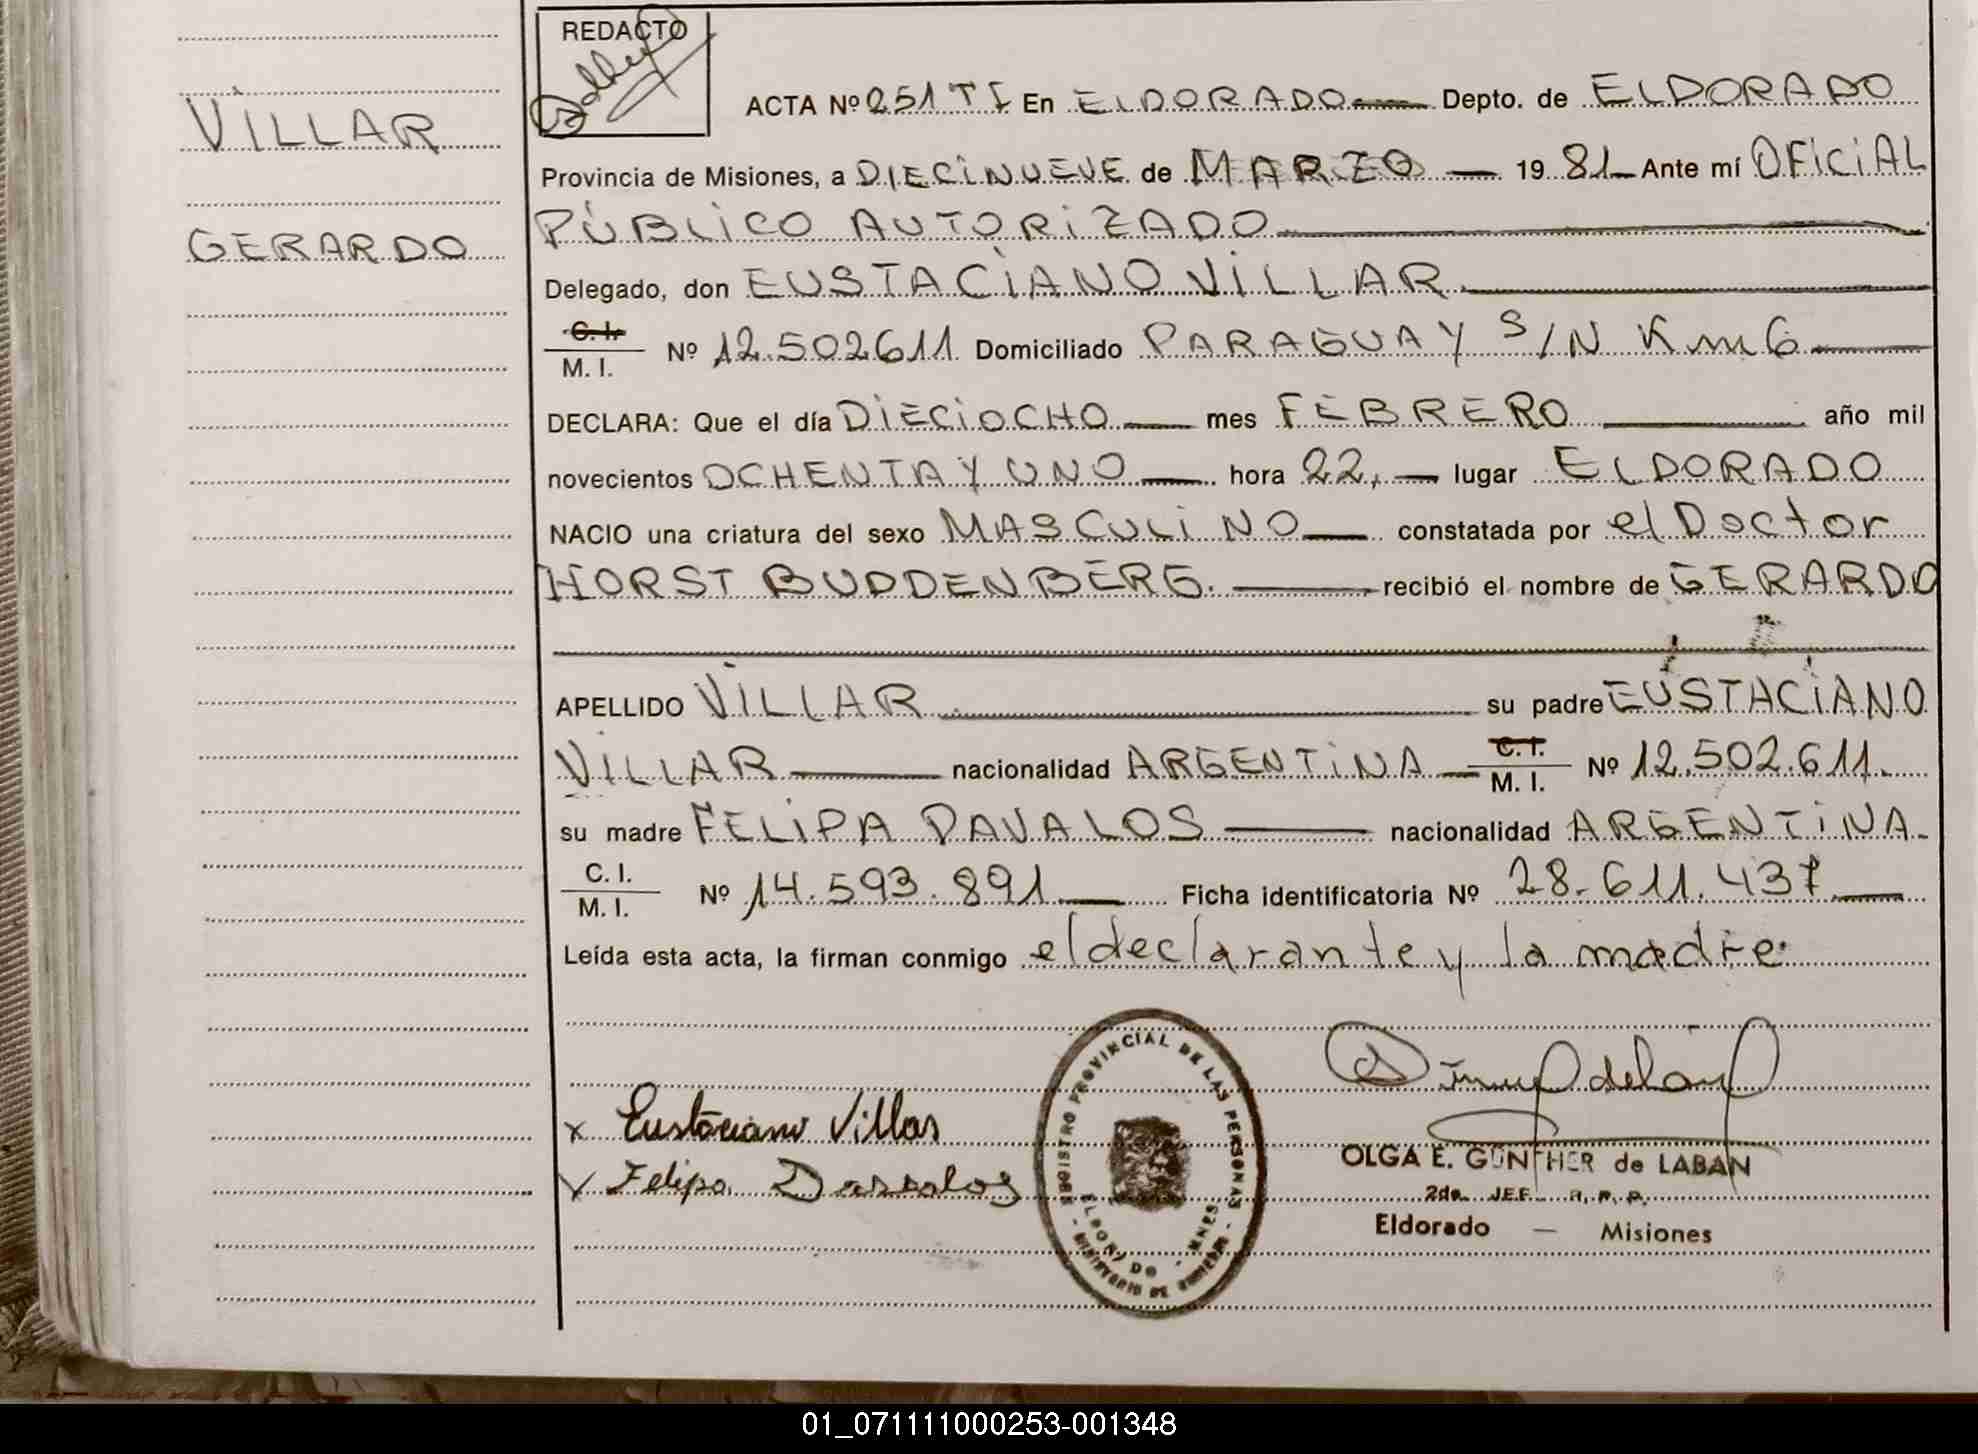 REDACTO
VILLAR
GERARDO
ACTA Nº 251 T I En ELDORADO Depto. de ELDORADO
Provincia de Misiones, a DIECINUEVE de MARZO 19 81 Ante mí OFICIAL
PÚBLICO AUTORIZADO
Delegado, don EUSTACIANO VILLAR
C. I.
M. I. Nº 12.502611 Domiciliado PARAGUAY S/N Km 6
DECLARA: Que el día DIECIOCHO mes FEBRERO año mil
novecientos OCHENTA Y UNO hora 22, lugar ELDORADO
NACIO una criatura del sexo MASCULINO constatada por el Doctor
HORST BUDDENBERG. recibió el nombre de GERARDO
APELLIDO VILLAR su padre EUSTACIANO
VILLAR nacionalidad ARGENTINA C. I. M. I. Nº 12.502.611.
su madre FELIPA DAVALOS nacionalidad ARGENTINA
C. I.
M. I. Nº 14.593.891 Ficha identificatoria Nº 28.611.437
Leída esta acta, la firman conmigo el declarante y la madre.
x Eustaciano Villar
x Felipa
REGISTRO PROVINCIAL DE LAS PERSONAS
ELDORADO - MNES
- MINISTERIO DE GOBIERNO -
OLGA E. GÜNTHER de LABAN
2da. JEF. R. P. P.
Eldorado — Misiones
01_071111000253-001348